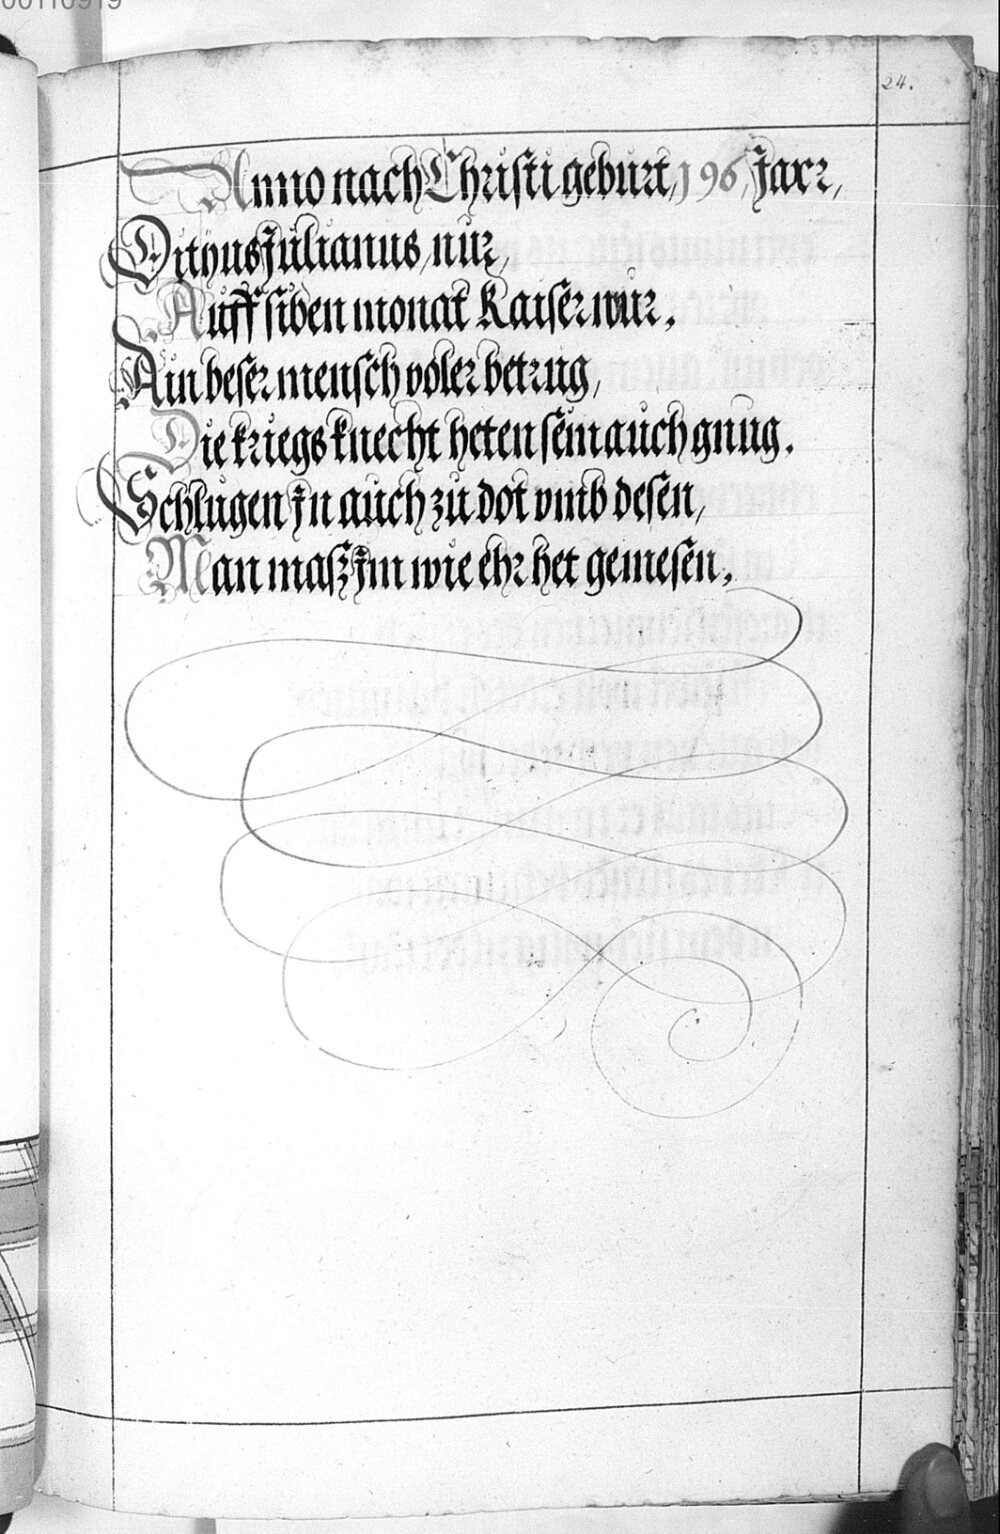 00110919
24.
Anno nach Christi geburt, 196, Jarr,
Dityus Julianus, nur,
Auff siben monat Kaiser wur.
Ain beser mensch voler betrug,
Die kriegs knecht heten sein auch gnug.
Schlugen jn auch zu dot vmb desen,
Man masz jm wie ehr het gemesen.